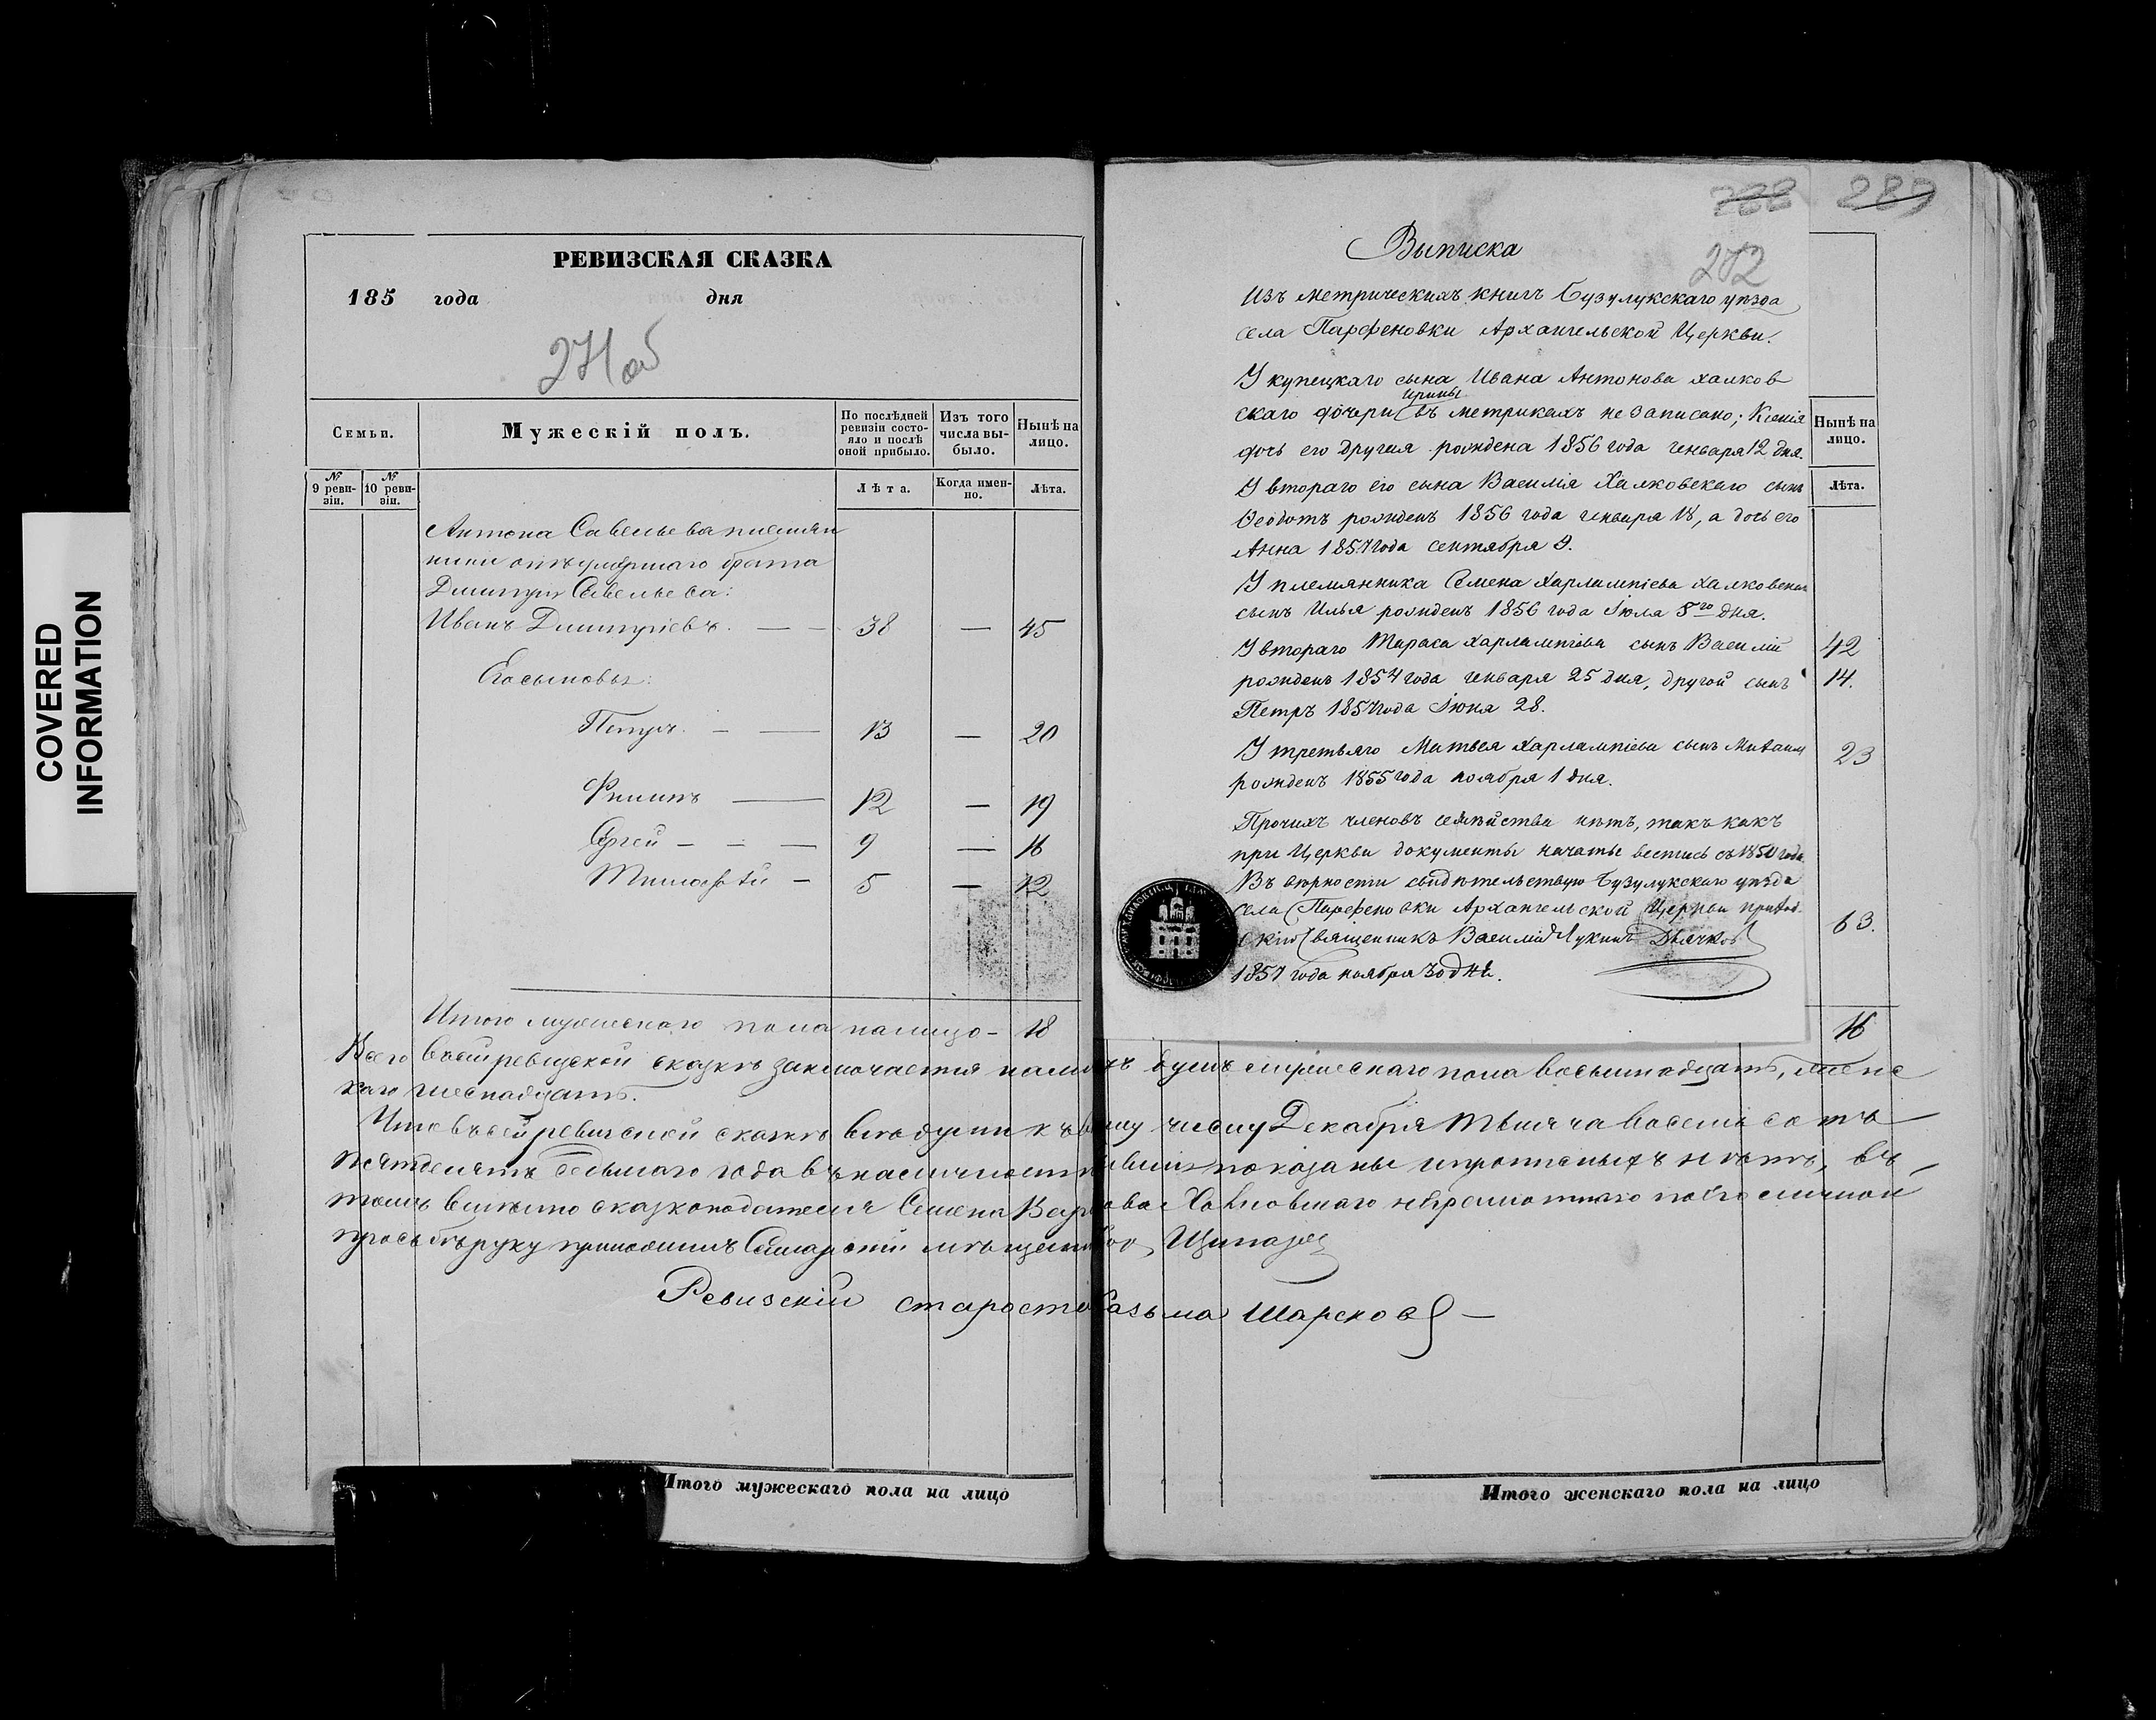 COVERED
INFORMATION
РЕВИЗСКАЯ СКАЗКА
185 года дня
271 об
Семьи.
Мужескій полъ.
По послѣдней ревизіи состояло и послѣ оной прибыло.
Изъ того числа выбыло.
Нынѣ на лицо.
№ 9 ревизіи.
№ 10 ревизіи.
Лѣта.
Когда именно.
Лѣта.
Антона Савельева племян
ники отъ умершаго брата
Дмитрія Савельева:
Иванъ Дмитріевъ. — — 38 — 45
Его сыновья:
Петръ. — — 13 — 20
Филипъ — 12 — 19
Сергей — — — 9 — 16
Тимофѣй — 5 — 12
Итого мужескаго пола налицо — 18
288 289
272
Выписка
Изъ метрическихъ книгъ Бузулукскаго уѣзда
села Парфеновки Архангельской Церкви.
У купецкаго сына Ивана Антонова Халков
скаго дочери Ирины въ метрикахъ не записано; Ксенія
дочь его другая рождена 1856 года генваря 12 дня.
У втораго его сына Василія Халковскаго сынъ
Ѳедотъ рожденъ 1856 года генваря 18, а дочь его
Анна 1857 года сентября 9.
У племянника Семена Харлампіева Халковскаго
сынъ Илья рожденъ 1856 года Іюля 8го дня.
У втораго Тараса Харлампіева сынъ Василій
рожденъ 1854 года генваря 25 дня, другой сынъ
Петръ 1857 года Іюня 28.
У третьяго Матвея Харлампіева сынъ Михаилъ
рожденъ 1855 года ноября 1 дня.
Прочихъ членовъ семѣйства нѣтъ, такъ какъ
при Церкви документы начаты вестись съ 1850 года
Въ вѣрности свидѣтельствую Бузулукскаго уѣзда
села Парфеновки Архангельской Церкви приход-
скій Священникъ Василій Лукинъ Дьячков
1857 года ноября 30 дня.
Нынѣ на лицо.
Лѣта.
42
14.
23
63.
16
Всего въ сей ревизской сказкѣ заключается налицо душъ мужескаго пола восьмнадцать, женс
каго шеснадцать.
Что въ сей ревизской сказкѣ все души къ числу Декабря тысяча восемь сотъ
пятьдесятъ седьмаго года въ наличности показаны и прописныхъ нѣтъ, въ
томъ вместо сказкоподателя Семена Халковскаго неграмотнаго по его личной
просьбѣ руку приложилъ Самарскій мѣщанинъ
Ревизскій староста Козьма Шарсков —
Итого мужескаго пола на лицо
Итого женскаго пола на лицо